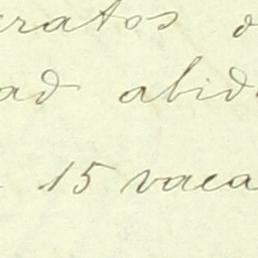 eratos d
ad abid
15 vaca